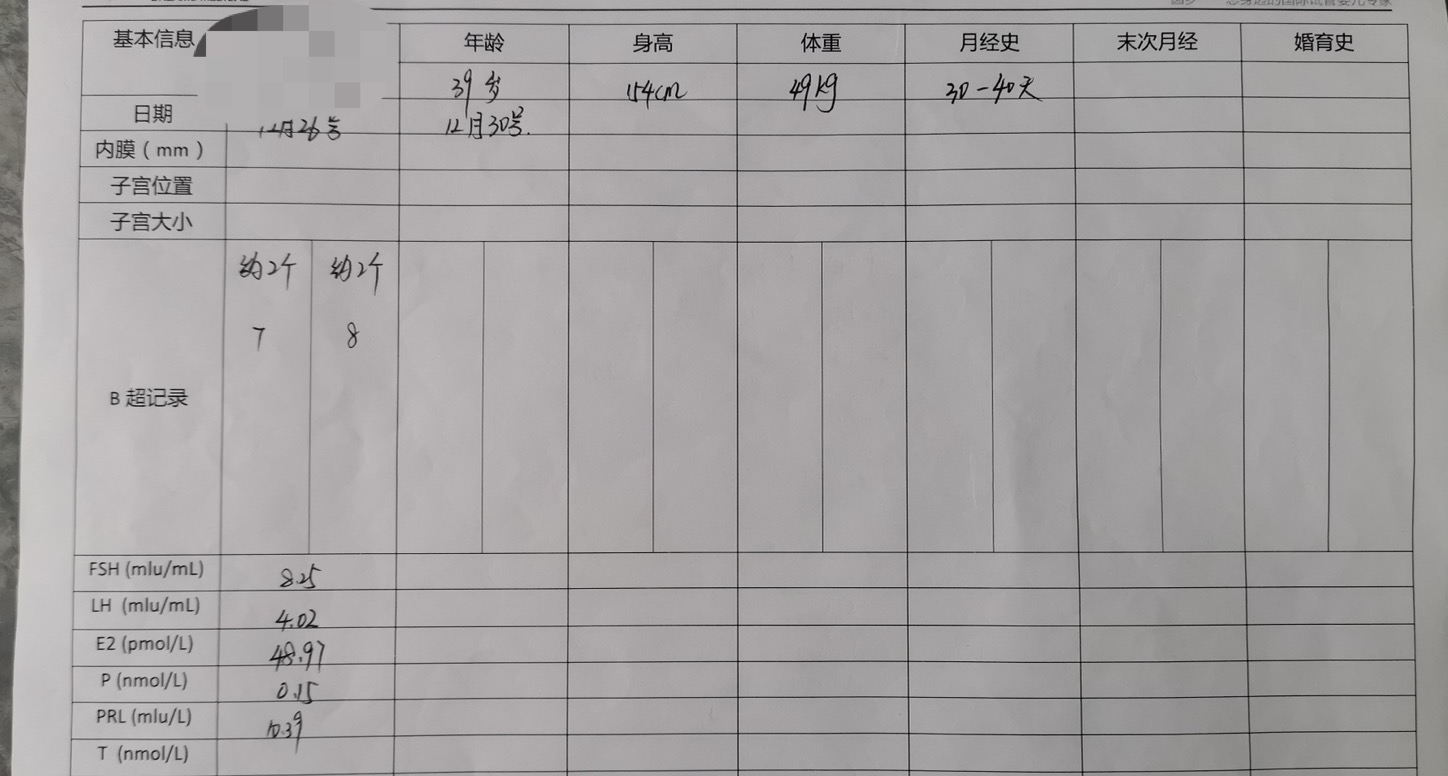 基本信息 年龄 身高 体重 月经史 末次月经 婚育史
39岁 154cm 49kg 30-40天
日期 12月26号 12月30号.
内膜（mm）
子宫位置
子宫大小
约2个 约2个
7 8
B 超记录
FSH (mlu/mL) 8.25
LH (mlu/mL) 4.02
E2 (pmol/L) 48.97
P (nmol/L) 0.15
PRL (mlu/L) 10.39
T (nmol/L)